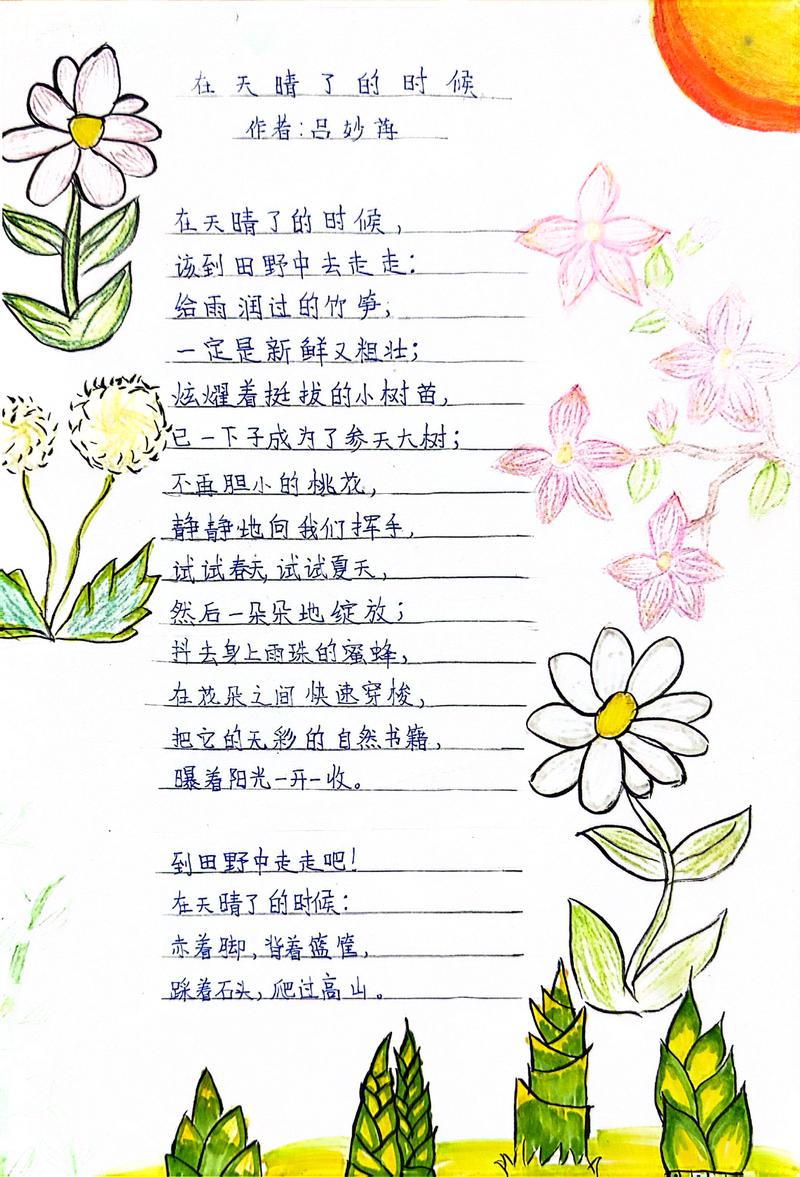 在天晴了的时候
作者:吕妙
在天晴了的时候,
该到田野中去走走:
给雨润过的竹笋,
一定是新鲜又粗壮;
炫耀着挺拔的小树苗,
已一下子成为了参天大树;
不再胆小的桃花,
静静地向我们挥手,
试试春天,试试夏天,
然后一朵朵地绽放;
抖去身上雨珠的蜜蜂,
在花朵之间快速穿梭,
把它的无彩的自然书籍,
曝着阳光一开一收。
到田野中走走吧!
在天晴了的时候:
赤着脚,背着篮筐,
踩着石头,爬过高山。